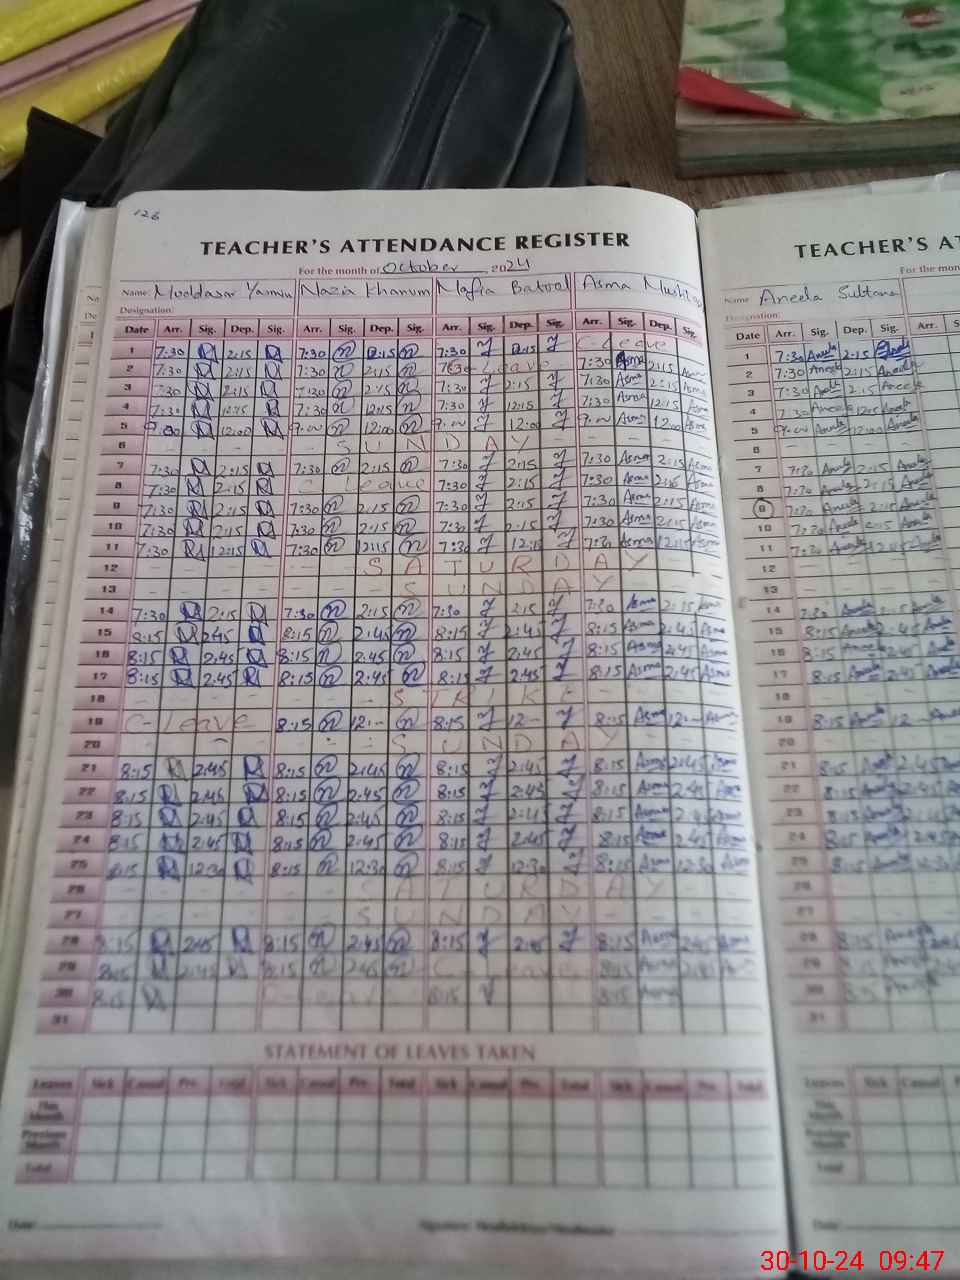 126
TEACHER'S ATTENDANCE REGISTER
For the month of October 2024
Name: Muddasar Yasmin Nazia Khanum Mafia Batool Asma Mushtaq
Designation:
Date Arr. Sig. Dep. Sig. Arr. Sig. Dep. Sig. Arr. Sig. Dep. Sig. Arr. Sig. Dep. Sig.
1 7:30 2:15 7:30 2:15 7:30 2:15 C-Leave
2 7:30 2:15 7:30 2:15 Leave 7:30 Asma 2:15 Asma
3 7:30 2:15 7:30 2:15 7:30 2:15 7:30 Asma 2:15 Asma
4 7:30 12:15 7:30 12:15 7:30 12:15 7:30 Asma 12:15 Asma
5 9:00 12:00 9:00 12:00 9:00 12:00 9:00 Asma 12:00 Asma
6 SUNDAY
7 7:30 2:15 7:30 2:15 7:30 2:15 7:30 Asma 2:15 Asma
8 7:30 2:15 C-Leave 7:30 2:15 7:30 Asma 2:15 Asma
9 7:30 2:15 7:30 2:15 7:30 2:15 7:30 Asma 2:15 Asma
10 7:30 2:15 7:30 2:15 7:30 2:15 7:30 Asma 2:15 Asma
11 7:30 12:15 7:30 12:15 7:30 12:15 7:30 Asma 12:15 Asma
12 SATURDAY
13 SUNDAY
14 7:30 2:15 7:30 2:15 7:30 2:15 7:30 Asma 2:15 Asma
15 8:15 2:45 8:15 2:45 8:15 2:45 8:15 Asma 2:45 Asma
16 8:15 2:45 8:15 2:45 8:15 2:45 8:15 Asma 2:45 Asma
17 8:15 2:45 8:15 2:45 8:15 2:45 8:15 Asma 2:45 Asma
18 STRIKE
19 C-Leave 8:15 12:- 8:15 12- 8:15 Asma 12:- Asma
20 SUNDAY
21 8:15 2:45 8:15 2:45 8:15 2:45 8:15 Asma 2:45 Asma
22 8:15 2:45 8:15 2:45 8:15 2:45 8:15 Asma 2:45 Asma
23 8:15 2:45 8:15 2:45 8:15 2:45 8:15 Asma 2:45 Asma
24 8:15 2:45 8:15 2:45 8:15 2:45 8:15 Asma 2:45 Asma
25 8:15 12:30 8:15 12:30 8:15 12:30 8:15 Asma 12:30 Asma
26 SATURDAY
27 SUNDAY
28 8:15 2:45 8:15 2:45 8:15 2:45 8:15 Asma 2:45 Asma
29 8:15 2:45 8:15 2:45 C-Leave 8:15 Asma 2:45 Asma
30 8:15 C-Leave 8:15 8:15 Asma
31
STATEMENT OF LEAVES TAKEN
Leaves Sick Casual Pri. Total Sick Casual Pri. Total Sick Casual Pri. Total Sick Casual Pri. Total
This Month
Previous Month
Total
Date:
TEACHER'S AT
For the mon
Name Aneela Sultana
Designation:
Date Arr. Sig. Dep. Sig. Arr. S
1 7:30 Aneela 2:15 Aneela
2 7:30 Aneela 2:15 Aneela
3 7:30 Aneela 2:15 Aneela
4 7:30 Aneela 12:15 Aneela
5 9:00 Aneela 12:00 Aneela
6
7 7:30 Aneela 2:15 Aneela
8 7:30 Aneela 2:15 Aneela
9 7:30 Aneela 2:15 Aneela
10 7:30 Aneela 2:15 Aneela
11 7:30 Aneela 12:15 Aneela
12
13
14 7:30 Aneela 2:15 Aneela
15 8:15 Aneela 2:45 Aneela
16 8:15 Aneela 2:45 Aneela
17 8:15 Aneela 2:45 Aneela
18
19 8:15 Aneela 12- Aneela
20
21 8:15 Aneela 2:45 Aneela
22 8:15 Aneela 2:45 Aneela
23 8:15 Aneela 2:45 Aneela
24 8:15 Aneela 2:45 Aneela
25 8:15 Aneela 12:30
26
27
28 8:15 Aneela 2:45
29 8:15 Aneela 2:45
30 8:15 Aneela
31
Leaves Sick Casual
This Month
Previous Month
Total
Date:
30-10-24 09:47